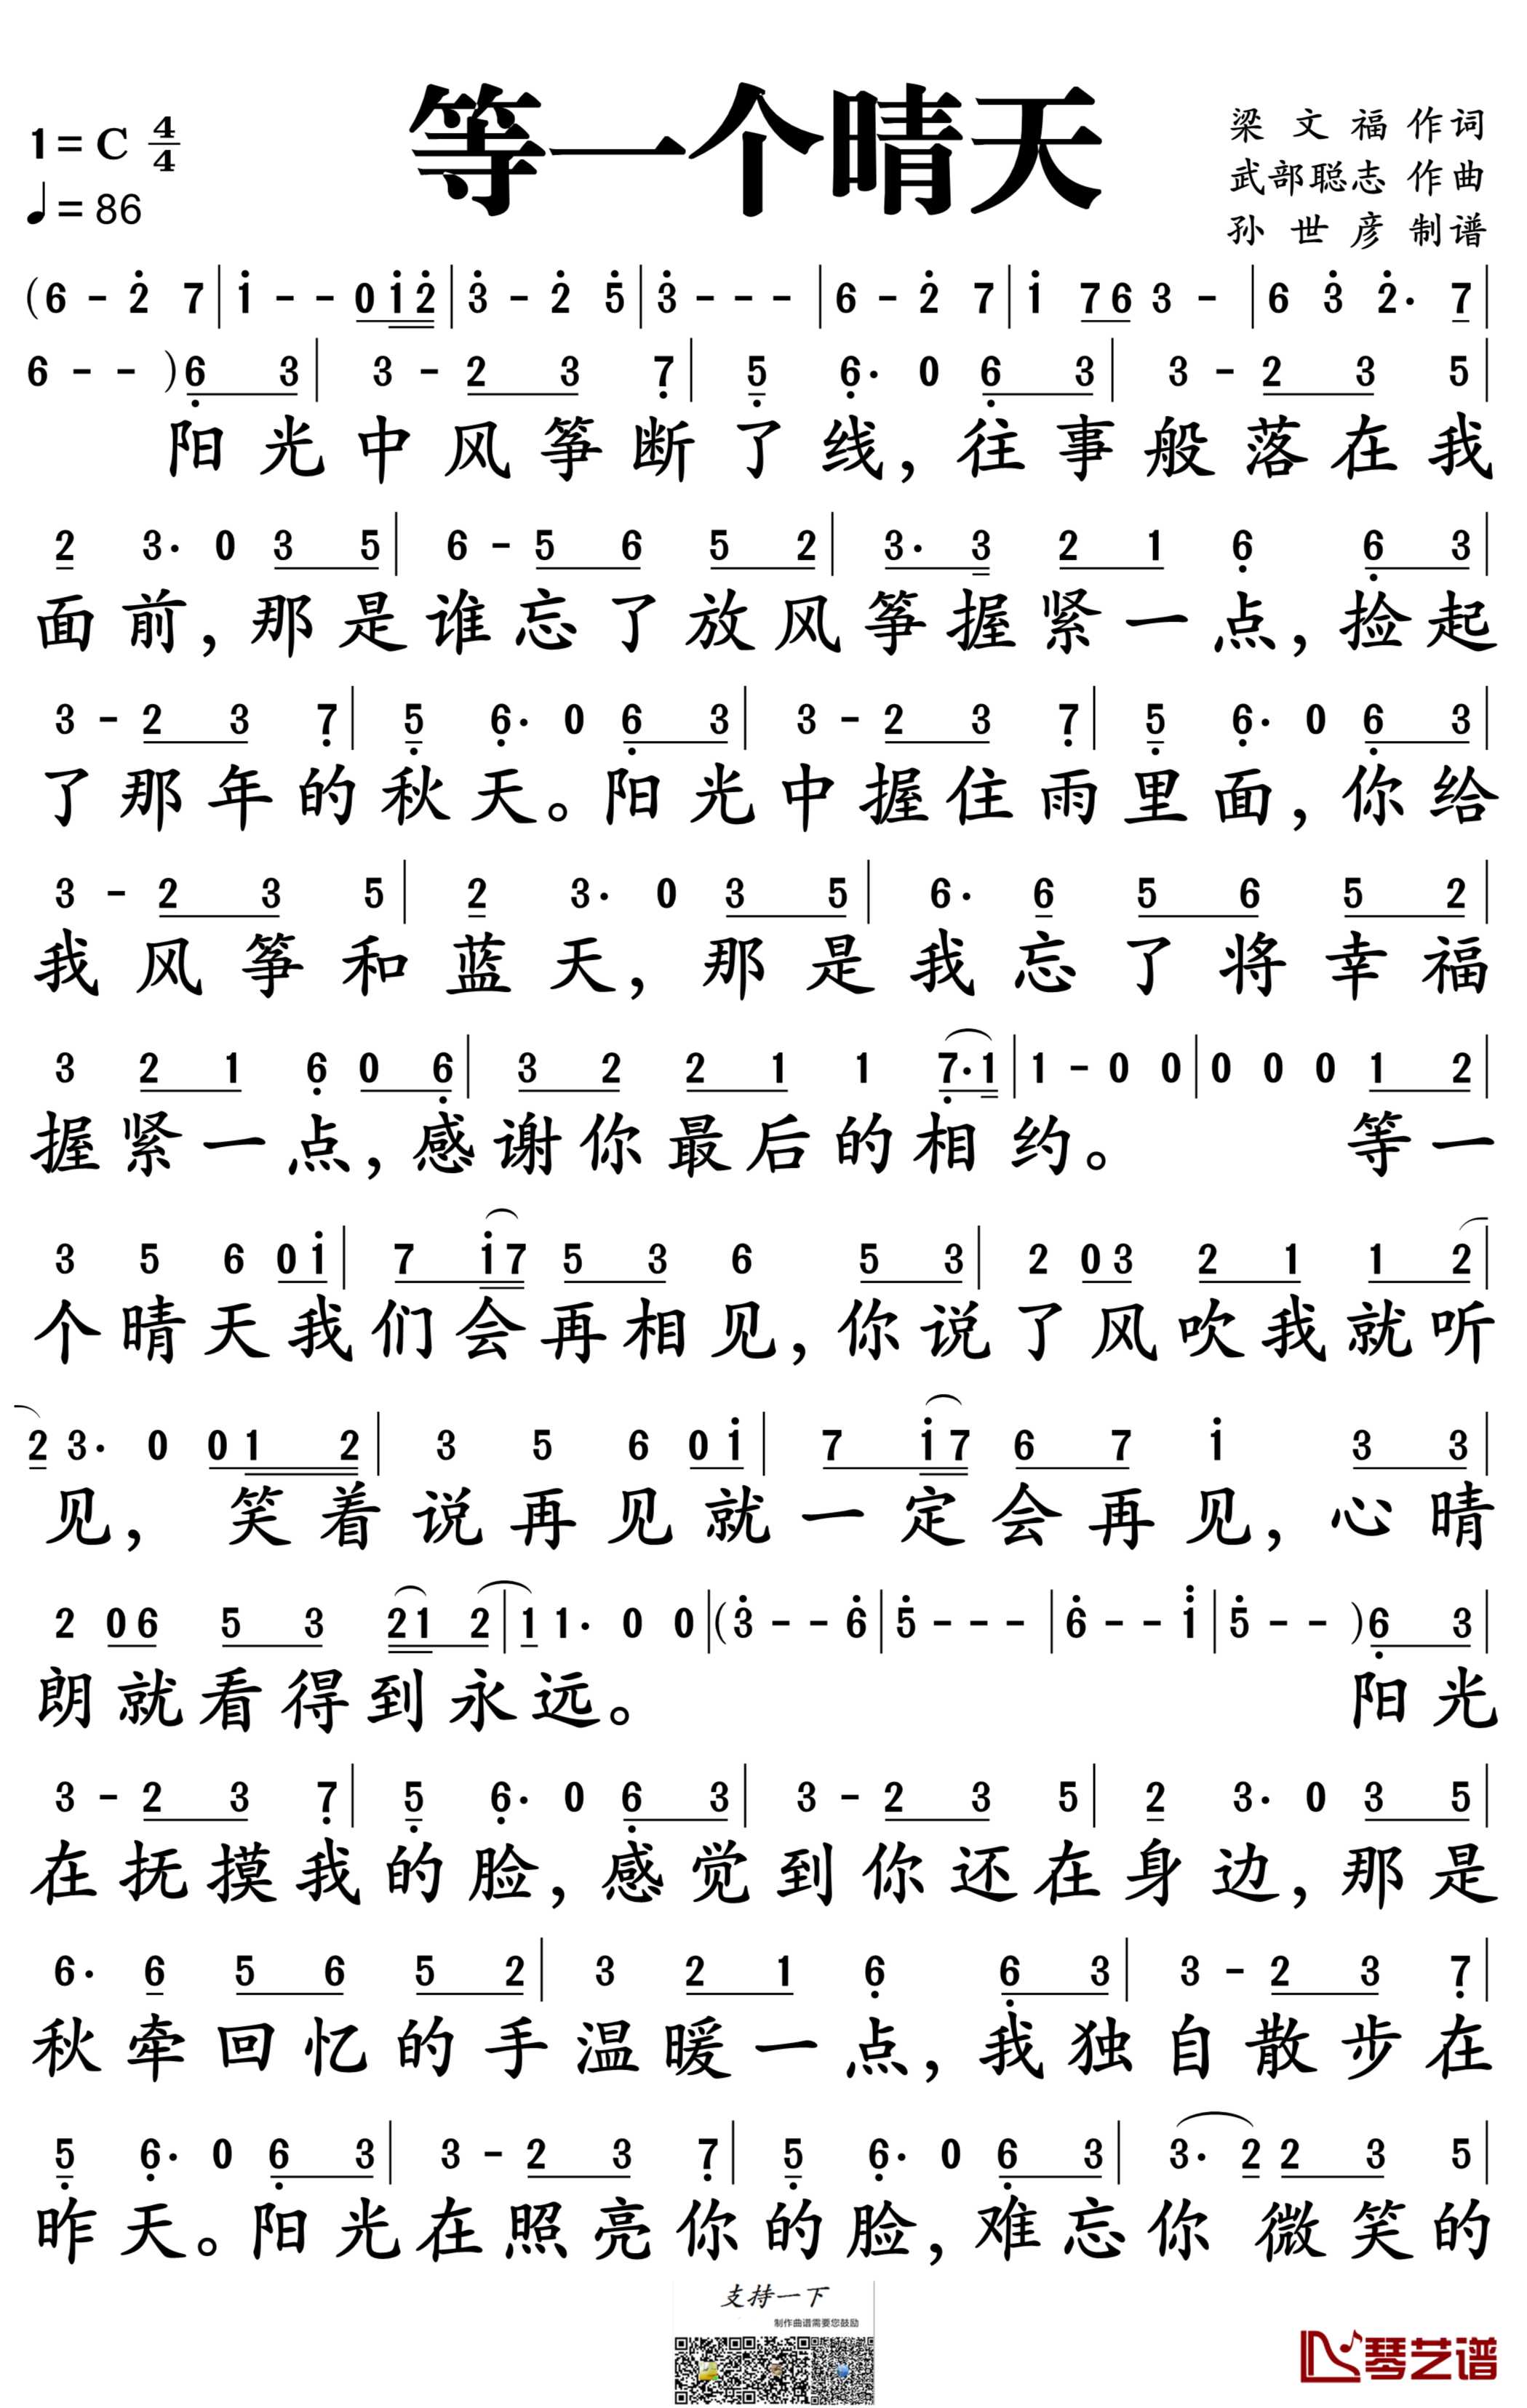 等一个晴天
1=C 4/4
♩=86
梁文福 作词
武部聪志 作曲
孙世彦 制谱
(6 - 2̇ 7 | 1̇ - - 0 1̇ 2̇ | 3̇ - 2̇ 5̇ | 3̇ - - - | 6 - 2̇ 7 | 1̇ 7 6 3 - | 6 3̇ 2̇· 7 |
6 - - ) 6̣ 3 | 3 - 2 3 7̣ | 5̣ 6̣· 0 6̣ 3 | 3 - 2 3 5 |
阳光中风筝断了线，往事般落在我
2 3· 0 3 5 | 6 - 5 6 5 2 | 3· 3 2 1 6̣ 6̣ 3 |
面前，那是谁忘了放风筝握紧一点，捡起
3 - 2 3 7̣ | 5̣ 6̣· 0 6̣ 3 | 3 - 2 3 7̣ | 5̣ 6̣· 0 6̣ 3 |
了那年的秋天。阳光中握住雨里面，你给
3 - 2 3 5 | 2 3· 0 3 5 | 6· 6 5 6 5 2 |
我风筝和蓝天，那是我忘了将幸福
3 2 1 6̣ 0 6̣ | 3 2 2 1 1 7̣· 1 | 1 - 0 0 | 0 0 0 1 2 |
握紧一点，感谢你最后的相约。 等一
3 5 6 0 1̇ | 7 1̇ 7 5 3 6 5 3 | 2 0 3 2 1 1 2 |
个晴天我们会再相见，你说了风吹我就听
2 3· 0 0 1 2 | 3 5 6 0 1̇ | 7 1̇ 7 6 7 1̇ 3 3 |
见，笑着说再见就一定会再见，心晴
2 0 6 5 3 2 1 2 | 1 1· 0 0 | (3̇ - - 6̇ | 5̇ - - - | 6̇ - - 1̈ | 5̇ - - ) 6̣ 3 |
朗就看得到永远。 阳光
3 - 2 3 7̣ | 5̣ 6̣· 0 6̣ 3 | 3 - 2 3 5 | 2 3· 0 3 5 |
在抚摸我的脸，感觉到你还在身边，那是
6· 6 5 6 5 2 | 3 2 1 6̣ 6̣ 3 | 3 - 2 3 7̣ |
秋牵回忆的手温暖一点，我独自散步在
5̣ 6̣· 0 6̣ 3 | 3 - 2 3 7̣ | 5̣ 6̣· 0 6̣ 3 | 3· 2 2 3 5 |
昨天。阳光在照亮你的脸，难忘你微笑的
支持一下
制作曲谱需要您鼓励
琴艺谱